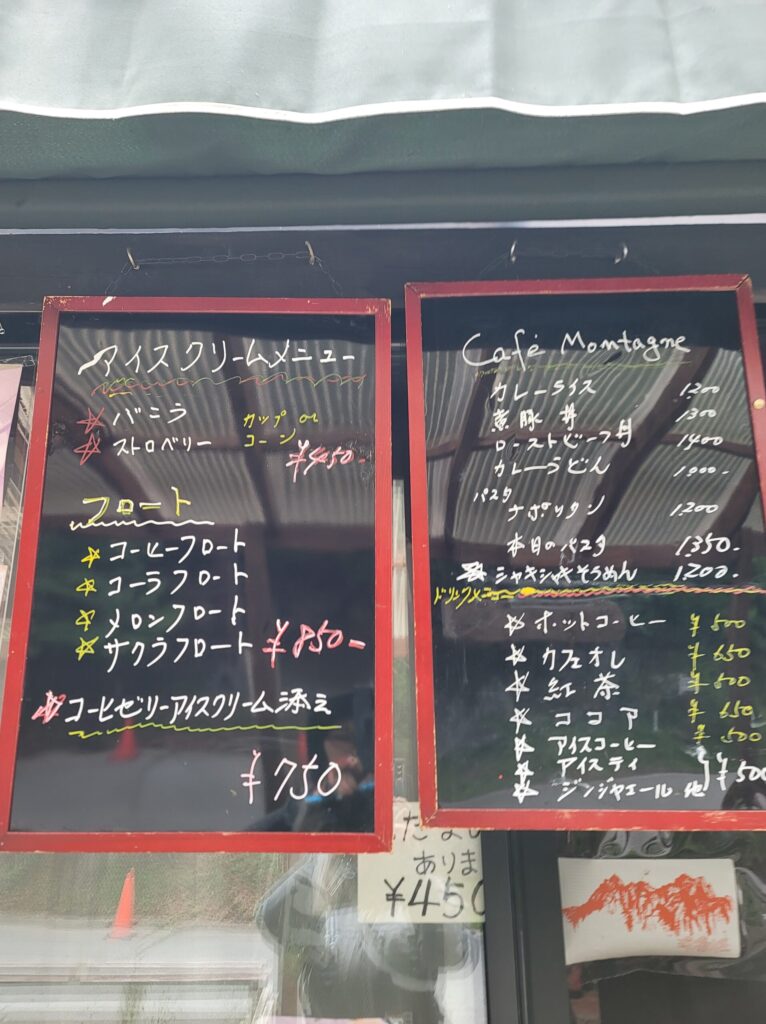 アイスクリームメニュー
☆ バニラ カップ or
☆ ストロベリー コーン
¥450-
フロート
☆ コーヒーフロート
☆ コーラフロート
☆ メロンフロート
☆ サクラフロート ¥850-
☆ コーヒゼリーアイスクリーム添え
¥750
Café Montagne
カレーライス 1200
豚丼 1300
ローストビーフ丼 1400
カレーうどん 1000-
パスタ
ナポリタン 1200
本日のパスタ 1350-
☆ シャキシャキそうめん 1200-
ドリンクメニュー
☆ ホットコーヒー ¥500
☆ カフェオレ ¥650
☆ 紅茶 ¥500
☆ ココア ¥650
☆ アイスコーヒー ¥500
☆ アイスティ
☆ ジンジャエール 他 ¥500
ありま
¥450